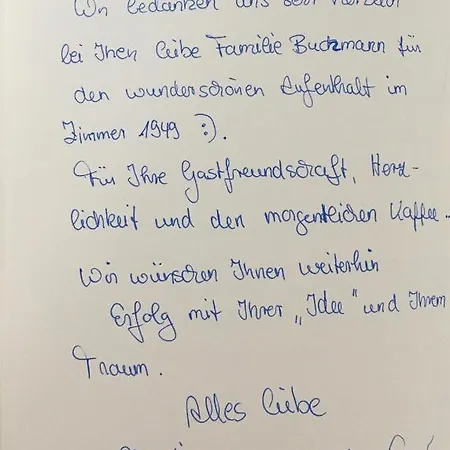 Wir bedanken uns sehr herzlich
bei Ihen liebe Familie Buchmann für
den wunderschönen Aufenthalt im
Zimmer 1949 :).
Für Ihre Gastfreundschaft, Herz-
lichkeit und den morgentlichen Kaffee..
Wir wünschen Ihnen weiterhin
Erfolg mit Ihrer „Idee" und Ihrem
Traum.
Alles Liebe